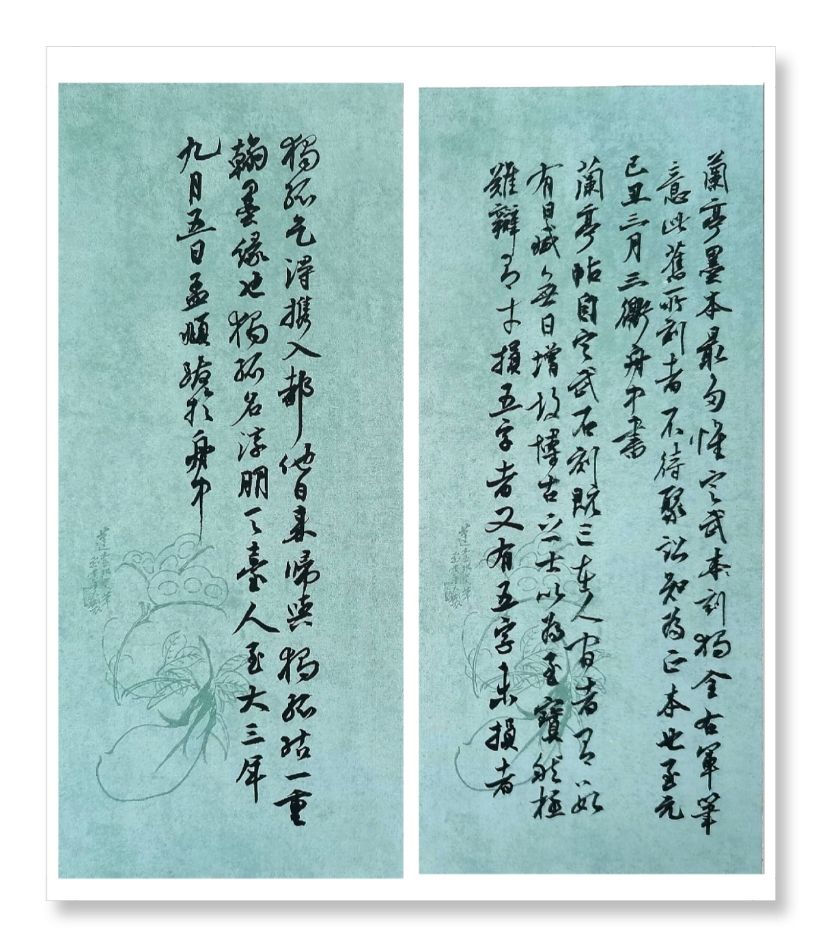 蘭亭墨本最多惟定武本刻獨全右軍筆
意此舊所刻者不待聚訟知為正本也至元
己丑三月三衢舟中書
蘭亭帖自定武石刻既亡在人間者有數
有日減無日增故博古之士以為至寶然極
難辯有才損五字者又有五字未損者
獨孤乞得攜入都他日來歸與獨孤結一重
翰墨緣也獨孤名淳朋天臺人至大三年
九月五日孟頫跋於舟中